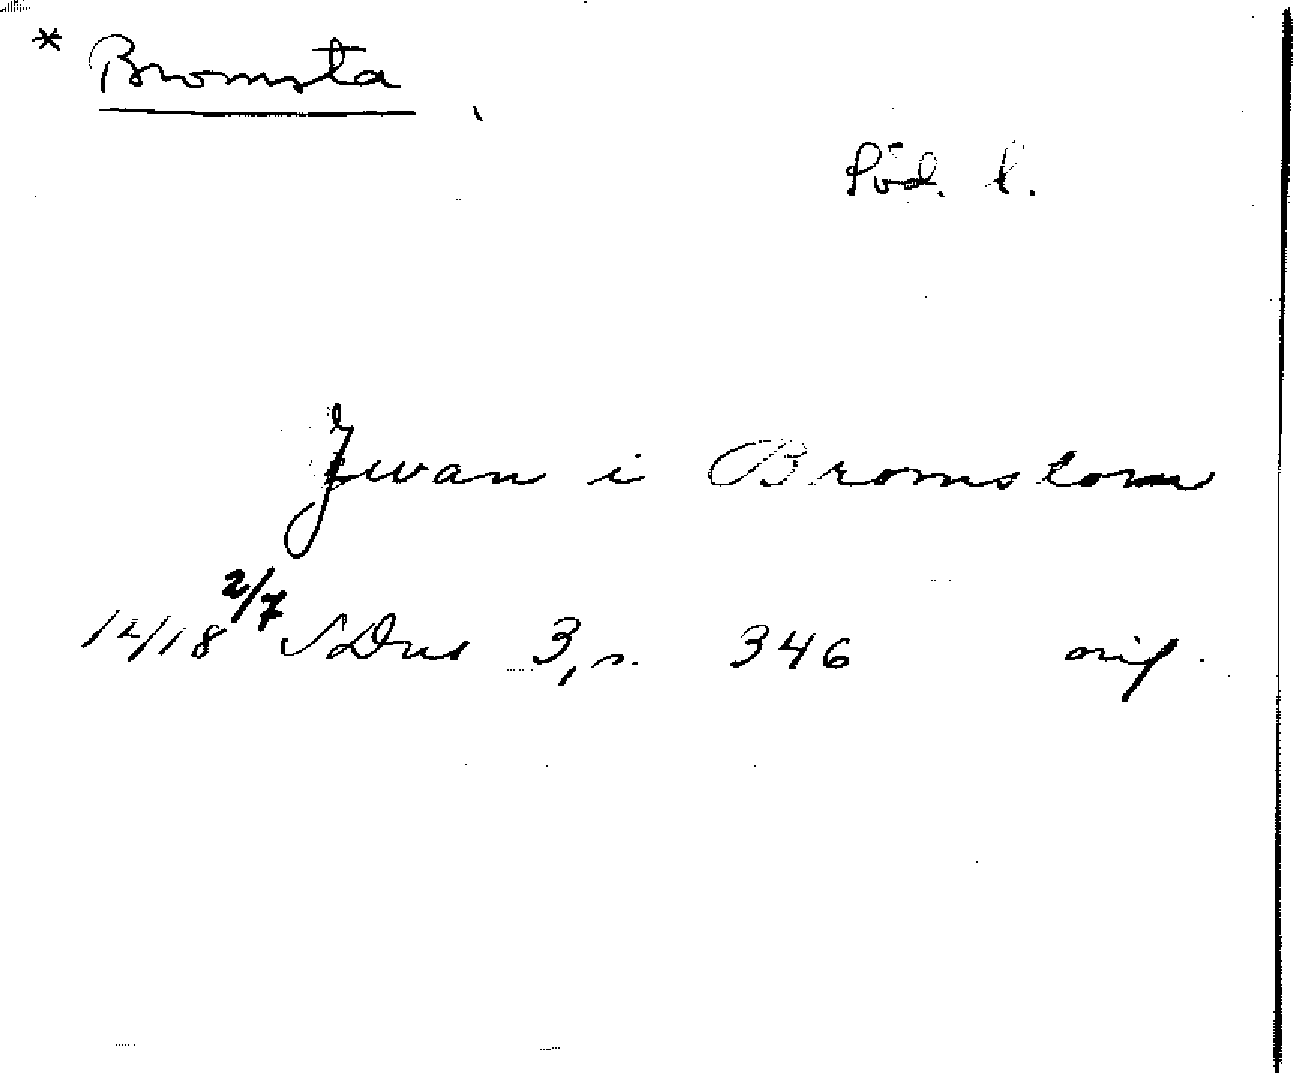 * Bromsta
Söd. l.
Jwan i Bromstom
1418 2/7 SDns 3, s. 346 orig.